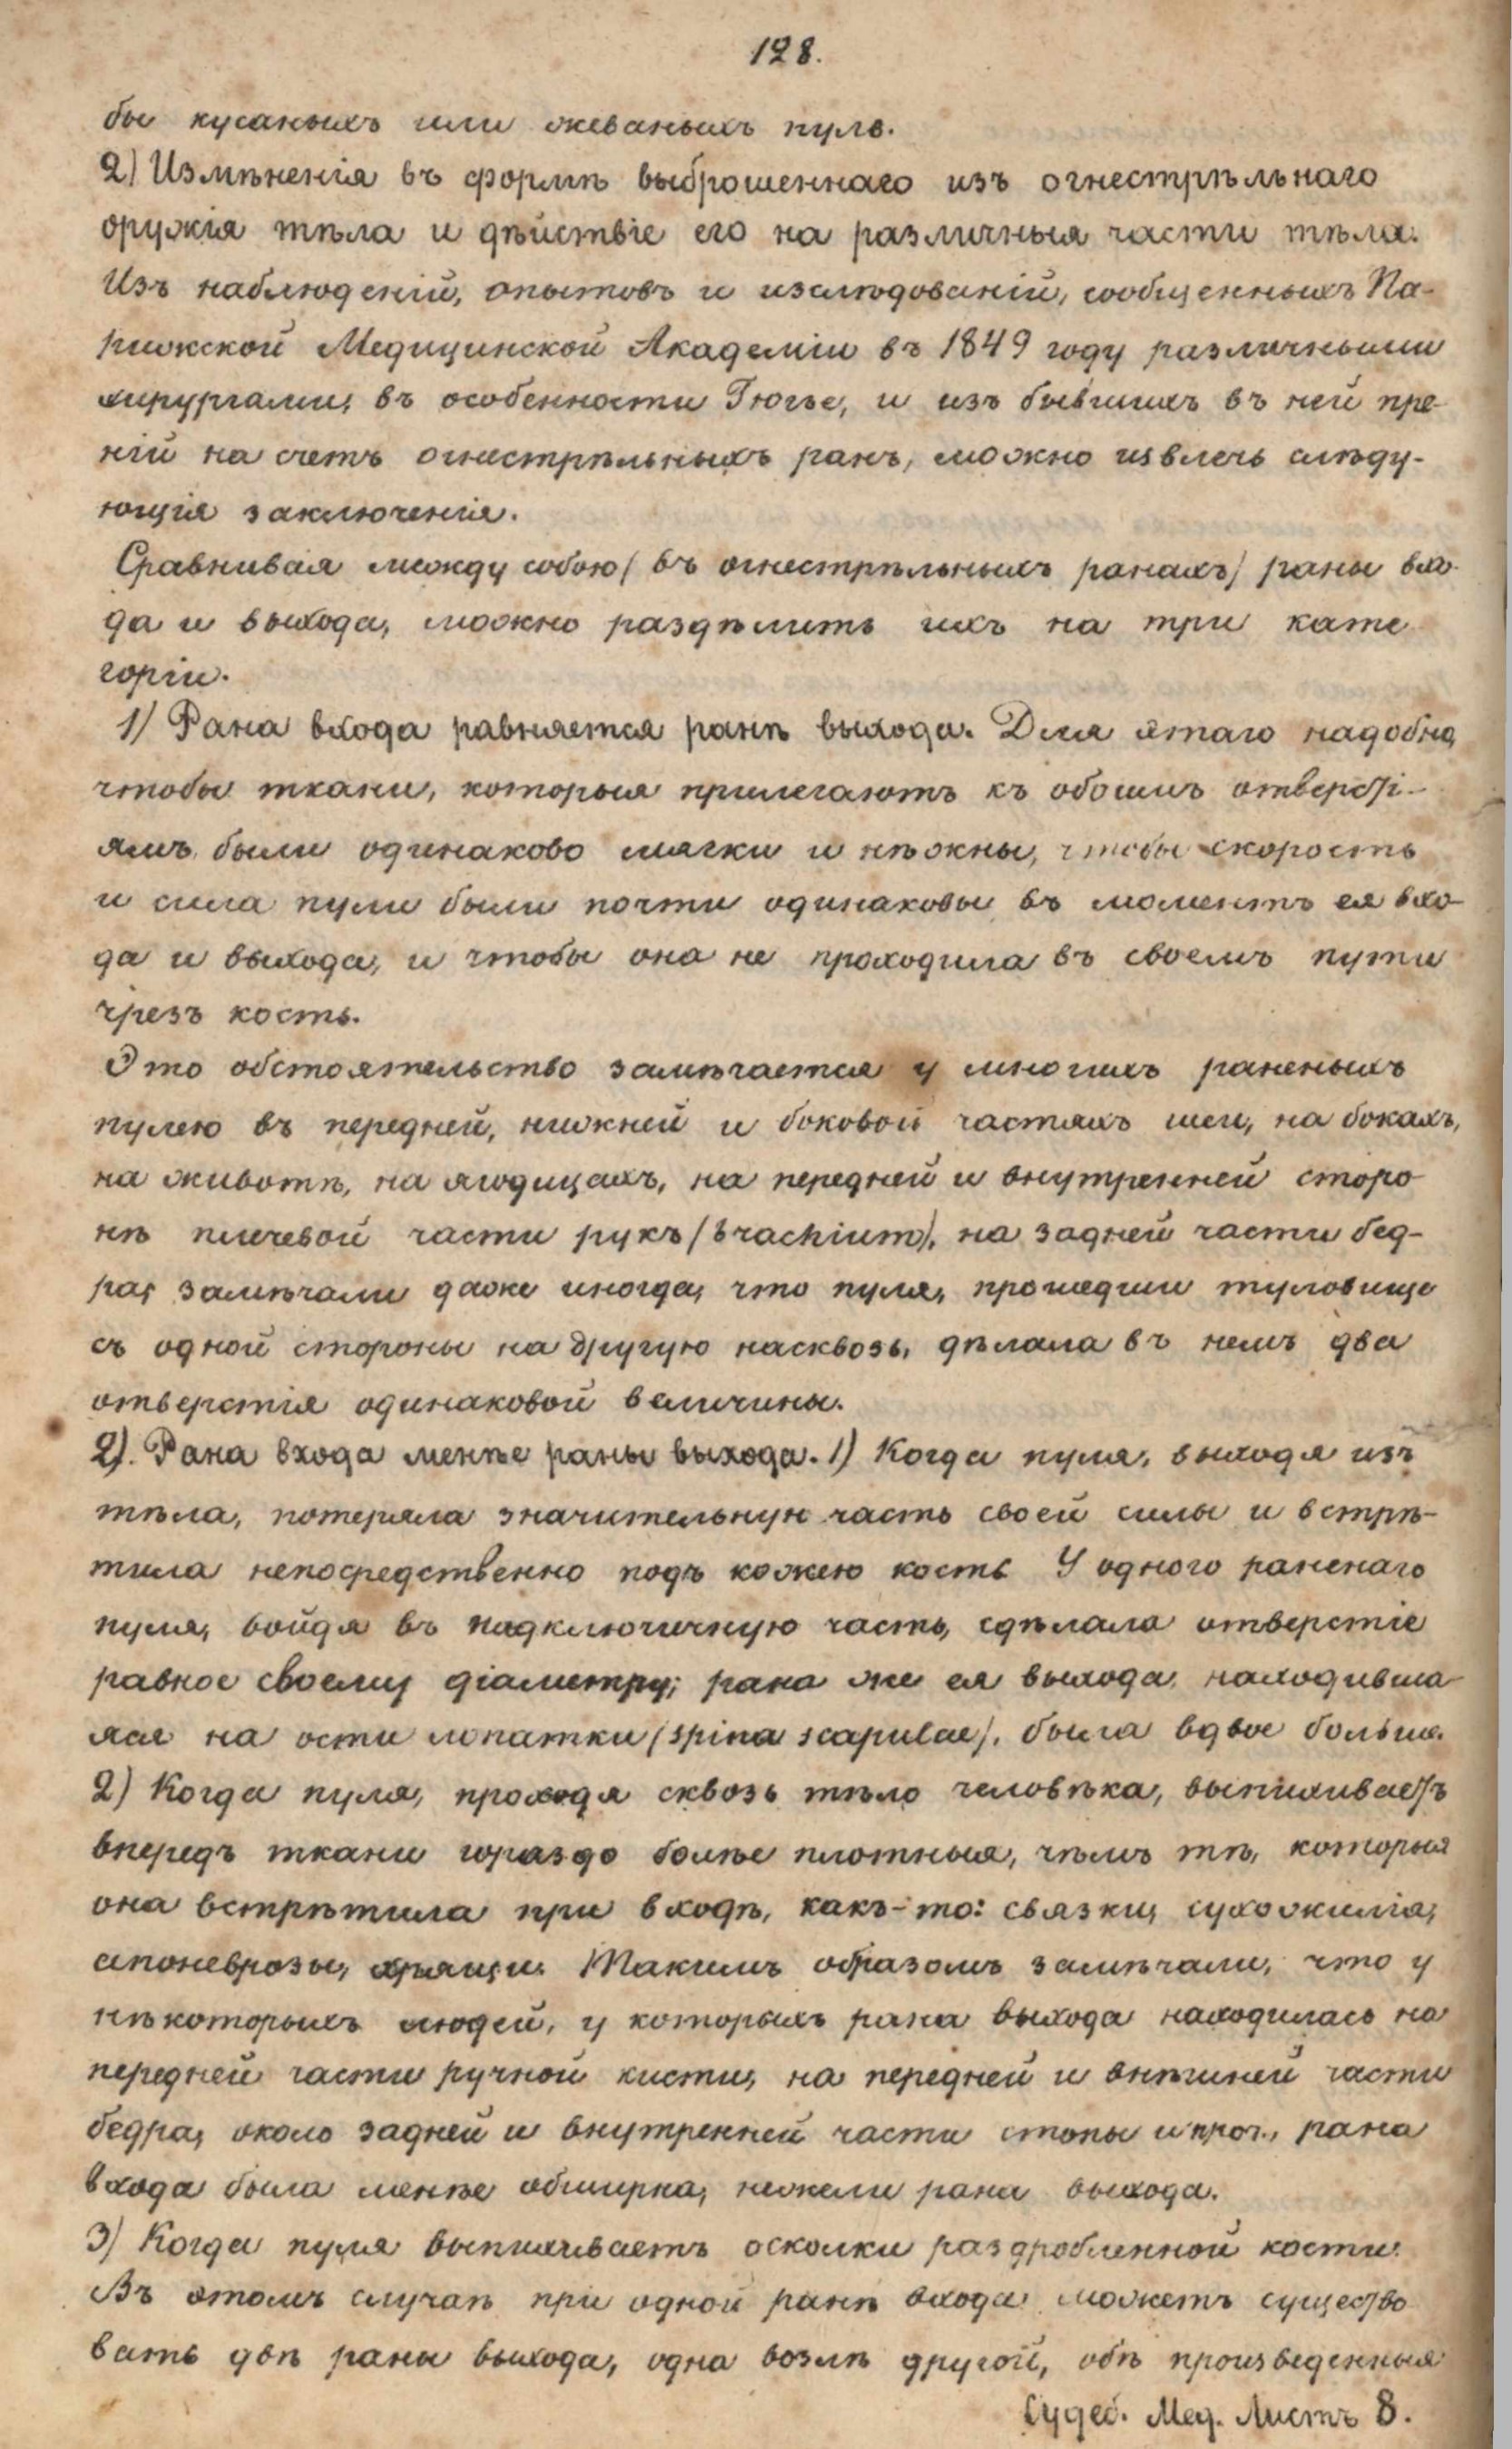 128.
бы кусаныхъ или жеваныхъ пуль.
2) Измѣненія въ формѣ выброшеннаго изъ огнестрѣльнаго
оружія тѣла и дѣйствіе его на различныя части тѣла.
Изъ наблюденій, опытовъ и изслѣдованій, сообщенныхъ Па-
рижской Медицинской Академіи въ 1849 году различными
хирургами, въ особенности Гюгье, и изъ бывшихъ въ ней пре-
ній на счетъ огнестрѣльныхъ ранъ, можно извлечь слѣду-
ющія заключенія.
Сравнивая между собою (въ огнестрѣльныхъ ранахъ) раны вхо-
да и выхода, можно раздѣлить ихъ на три кате
горіи.
1) Рана входа равняется ранѣ выхода. Для этаго надобно,
чтобы ткани, которыя прилегаютъ къ обоимъ отверсті-
ямъ были одинаково мягки и нѣжны, чтобы скорость
и сила пули были почти одинаковы въ моментъ ея вхо-
да и выхода, и чтобы она не проходила въ своемъ пути
чрезъ кость.
Это обстоятельство замѣчается у многихъ раненыхъ
пулею въ передней, нижней и боковой частяхъ шеи, на бокахъ,
на животѣ, на ягодицахъ, на передней и внутренней сторо
нѣ плечевой части рукъ (brachium), на задней части бед-
ра; замѣчали даже иногда, что пуля, прошедши туловище
съ одной стороны на другую насквозь, дѣлала въ немъ два
отверстія одинаковой величины.
2). Рана входа менѣе раны выхода. 1) Когда пуля, выходя изъ
тѣла, потеряла значительную часть своей силы и встрѣ-
тила непосредственно подъ кожею кость. У одного раненаго
пуля, войдя въ надключичную часть, сдѣлала отверстіе
равное своему діаметру; рана же ея выхода, находивша
яся на ости лопатки (spina scapulae), была вдвое больше.
2) Когда пуля, проходя сквозь тѣло человѣка, выпихиваетъ
впередъ ткани гораздо болѣе плотныя, чѣмъ тѣ, которыя
она встрѣтила при входѣ, какъ-то: связки, сухожилія,
апоневрозы, хрящи. Такимъ образомъ замѣчали, что у
нѣкоторыхъ людей, у которыхъ рана выхода находилась на
передней части ручной кисти, на передней и внѣшней части
бедра, около задней и внутренней части стопы и проч., рана
входа была менѣе обширна, нежели рана выхода.
3) Когда пуля выпихиваетъ осколки раздробленной кости.
Въ этомъ случаѣ при одной ранѣ входа можетъ существо
вать двѣ раны выхода, одна возлѣ другой, обѣ произведенныя
Судеб. Мед. Листъ 8.